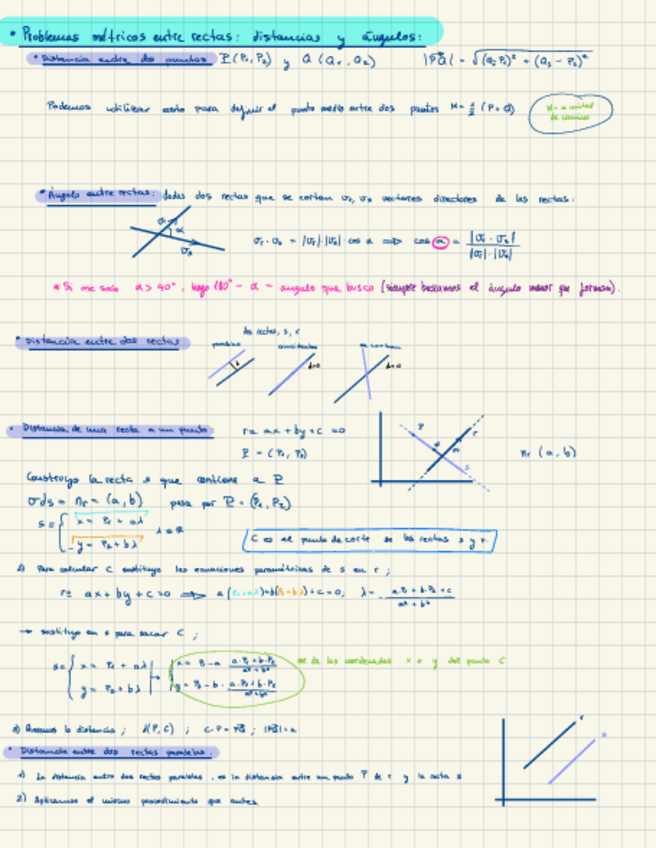 • Problemas métricos entre rectas: distancias y ángulos:
• Distancia entre dos puntos P(P₁,P₂) y Q(Q₁,Q₂) |PQ| = √((Q₁-P₁)² + (Q₂-P₂)²)
Podemos utilizar esto para definir el punto medio entre dos puntos M = ½ (P+Q)
de camino
• Ángulo entre rectas: dadas dos rectas que se cortan vᵣ, vₛ vectores directores de las rectas:
α
vₛ
vᵣ · vₛ = |vᵣ|·|vₛ|·cos α ⟹ cos α = |vᵣ · vₛ| / |vᵣ|·|vₛ|
* Si me sale α > 90°, hago 180° - α = angulo que busco (siempre buscamos el ángulo menor que forman).
• Distancia entre dos rectas
ds rectas, s, r
paralelas coincidentes se cortan
d=0 d=0
• Distancia de una recta a un punto: r ≡ ax + by + c = 0
P = (P₁, P₂)
nᵣ (a,b)
Construyo la recta s que contiene a P
vds = nᵣ = (a,b) pasa por P = (P₁, P₂)
s ≡ { x = P₁ + aλ
y = P₂ + bλ λ ∈ ℝ
C es el punto de corte de las rectas s y r.
2) Para calcular C sustituyo las ecuaciones paramétricas de s en r;
r ≡ ax + by + c = 0 ⟹ a(P₁+aλ)+b(P₂+bλ)+c=0; λ = - a·P₁+b·P₂+c / a²+b²
→ sustituyo en s para sacar C;
s ≡ { x = P₁ + aλ
y = P₂ + bλ
x = P₁ - a · a·P₁+b·P₂ / a²+b²
y = P₂ - b · a·P₁+b·P₂ / a²+b²
me da las coordenadas x e y del punto C
3) la distancia; d(P,C);
• Distancia entre dos rectas paralelas:
1) La distancia entre dos rectas paralelas, es la distancia entre un punto P de r y la recta s
2) Aplicamos el mismo procedimiento que antes
r
s